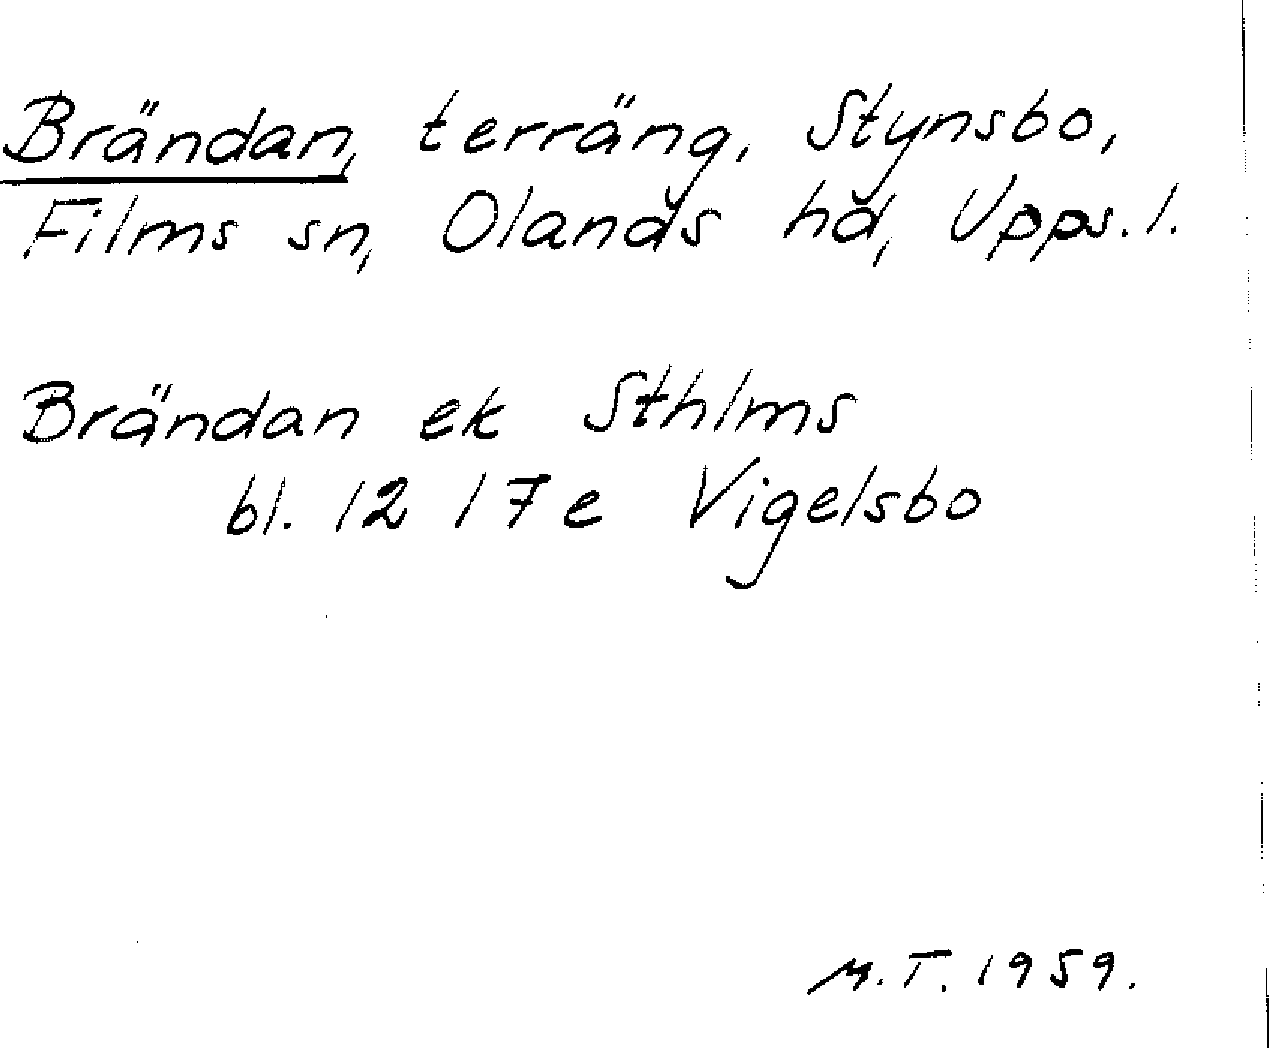 Brändan, terräng, Stynsbo,
Films sn, Olands hd, Upps. l.
Brändan ek Sthlms
bl. 12 17e Vigelsbo
M.T. 1959.